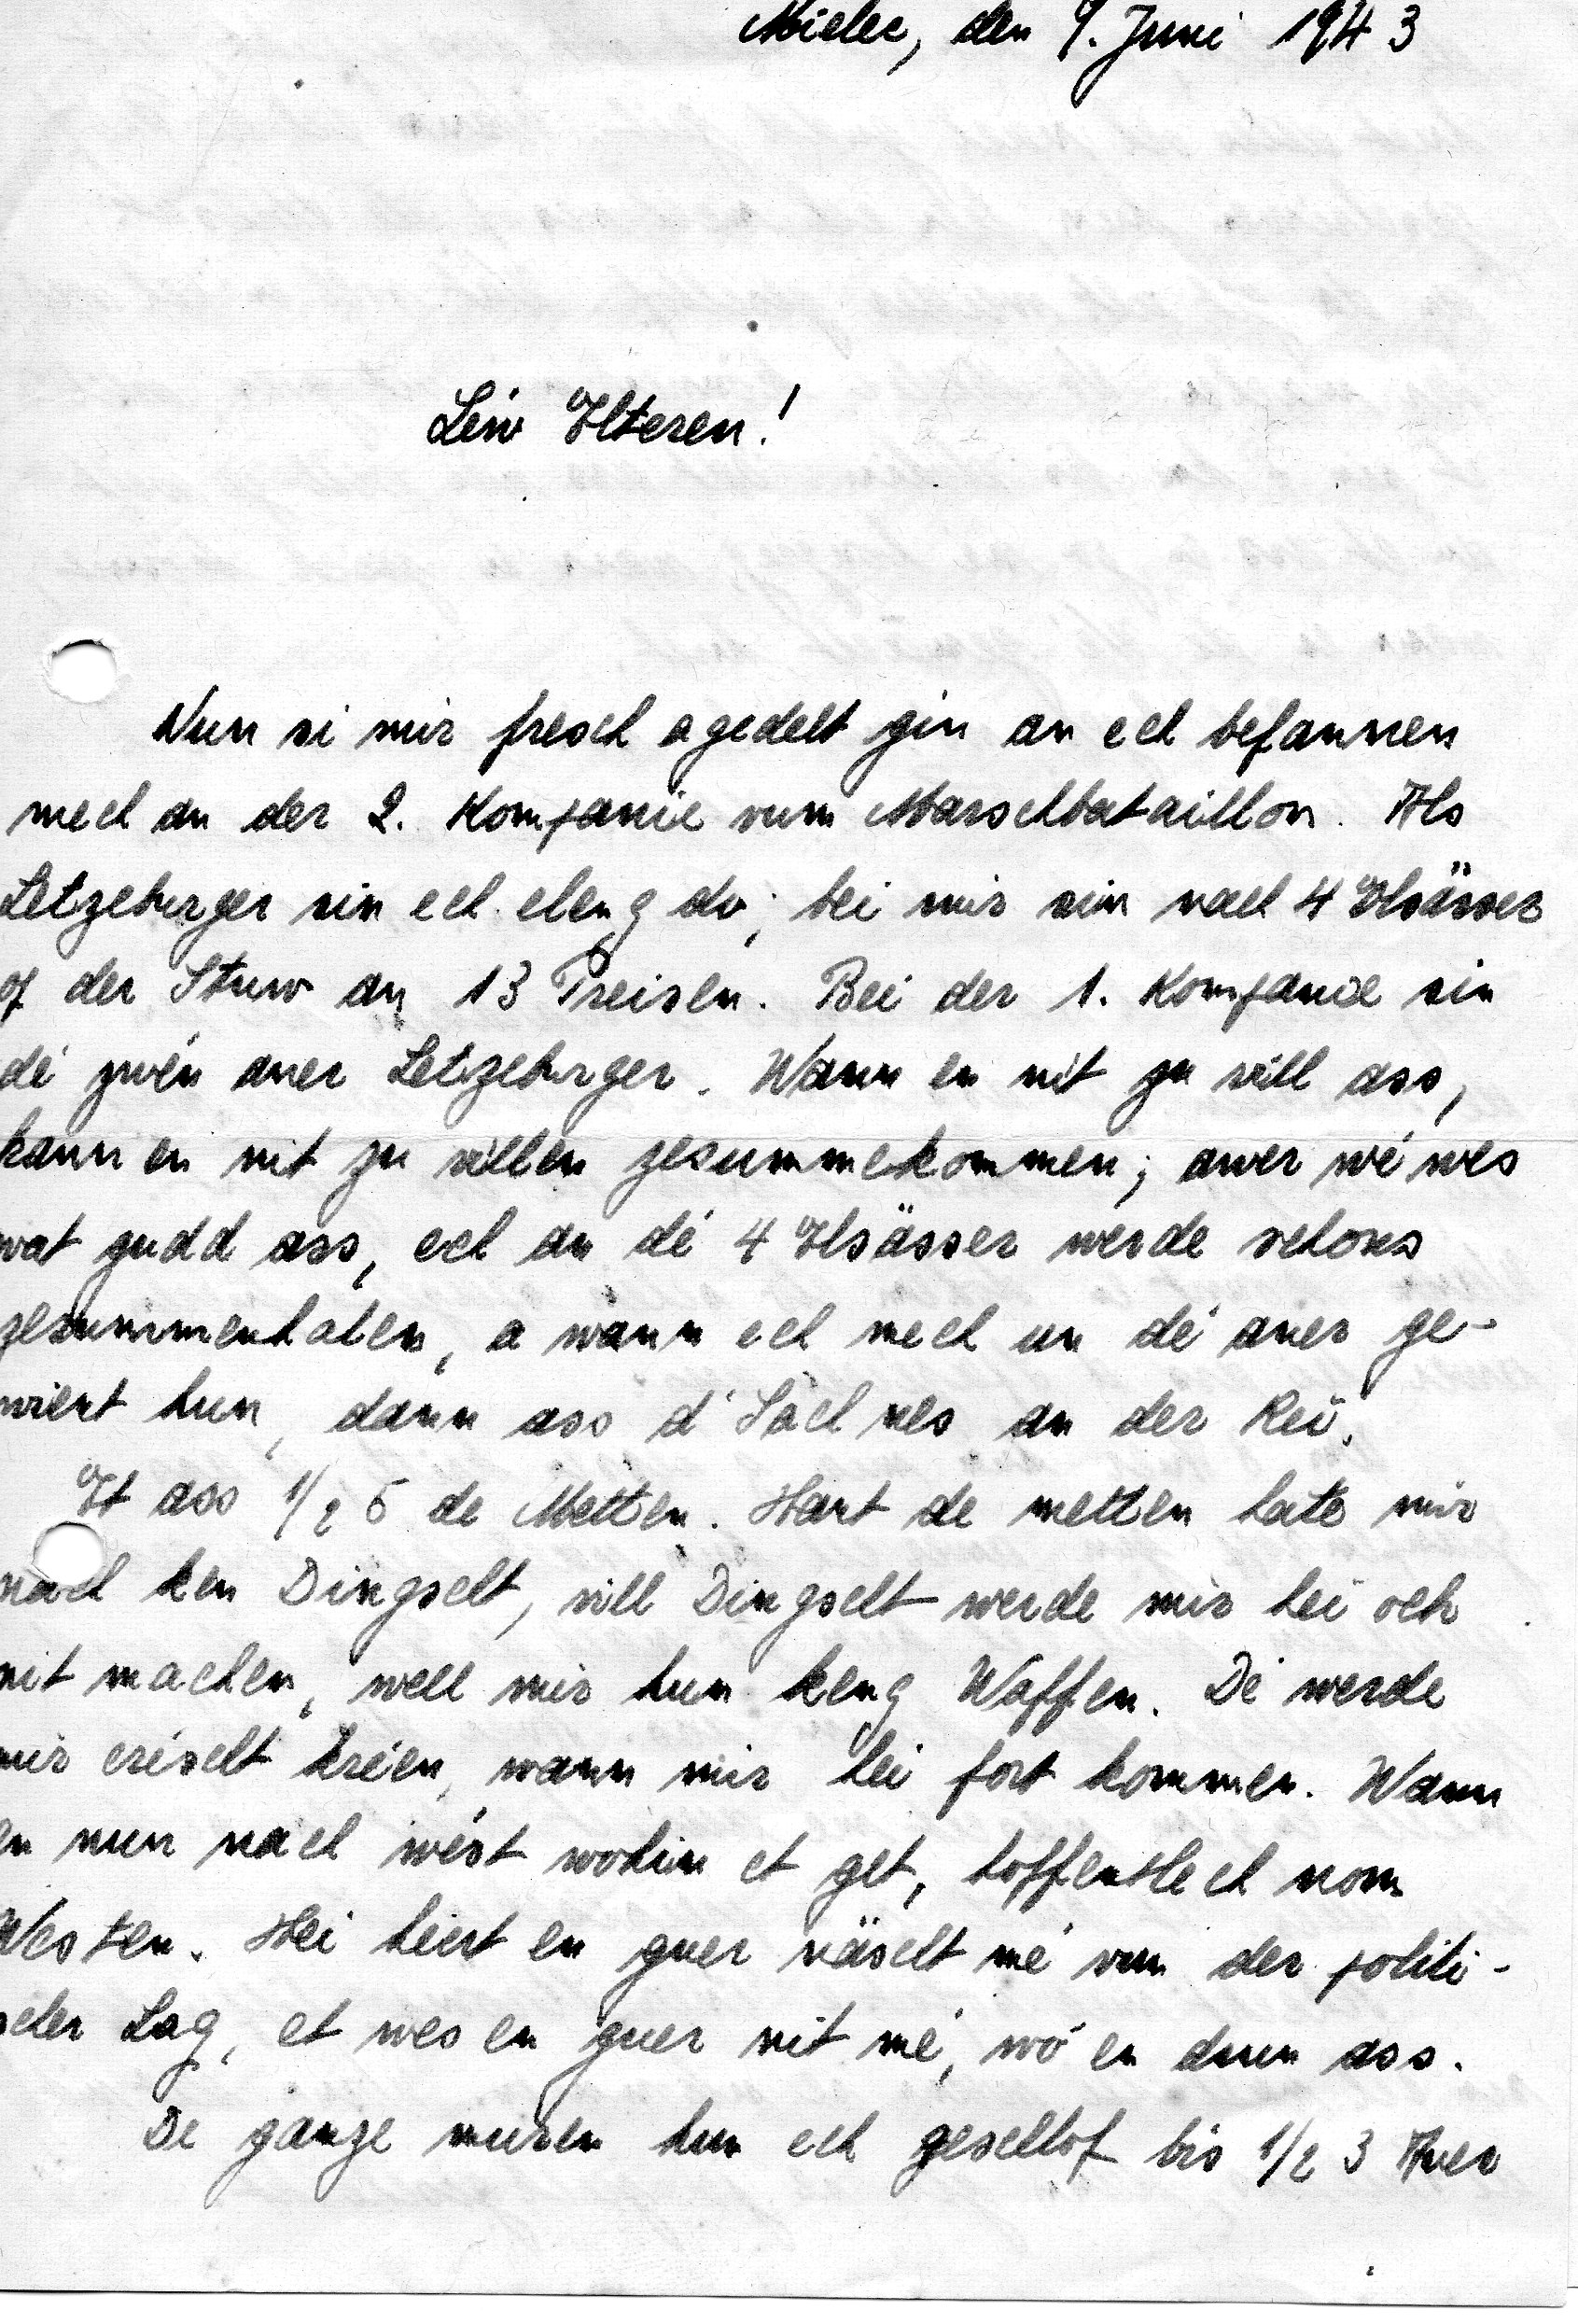 Mielec, den 9. Juni 1943
Léiw Elteren!
Nun si mir fresch agedelt gin an ech befannen
mech an der 2. Kompanie vum Marschbataillon. Als
Letzeburger sin ech eleng do; bei mir sin nach 4 Elsässer
of der Stuw an 13 Preisen. Bei der 1. Kompanie sin
dé zwén aner Letzeburger. Wann en nit zu vill ass,
kann en nit zu villen zesummekommen; awer wé wes
wat gudd ass, ech an dé 4 Elsässer werde schons
zesummenhalen, a wann ech mech un dé aner ge-
wient hun, dann ass d'Sach nes an der Rei.
Et ass 1/2 5 de Metten. Haut de metten hate mir
nach ken Dingscht, vill Dingscht werde mir hei och
nit machen, well mir hun keng Waffen. Dé werde
mir eréischt kréien, wann mir hei fort kommen. Wann
en nun nach wést wohin et get, hoffentlech nom
Westen. Hei héert en guer näischt mé vun der politi-
scher Lag, et wes en guer nit mé, wó en drun ass.
De ganze muren hun ech geschlof bis 1/2 3 Auer